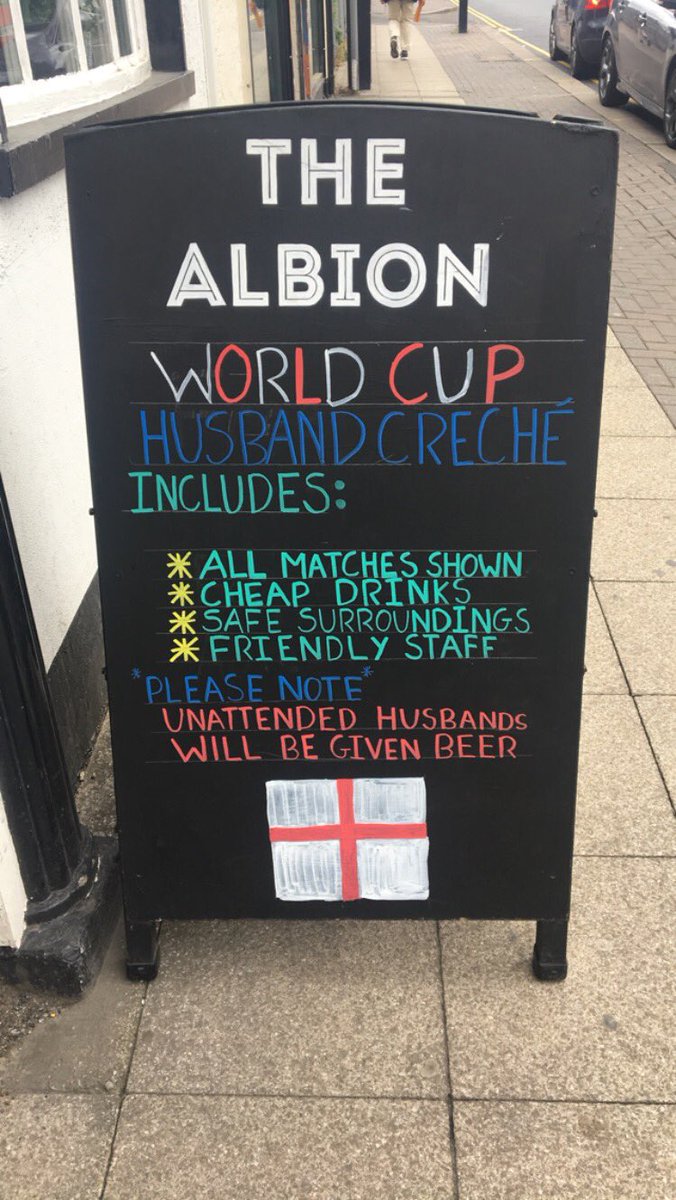 THE
ALBION
WORLD CUP
HUSBAND CRECHÉ
INCLUDES:
* ALL MATCHES SHOWN
* CHEAP DRINKS
* SAFE SURROUNDINGS
* FRIENDLY STAFF
*PLEASE NOTE*
UNATTENDED HUSBANDS
WILL BE GIVEN BEER